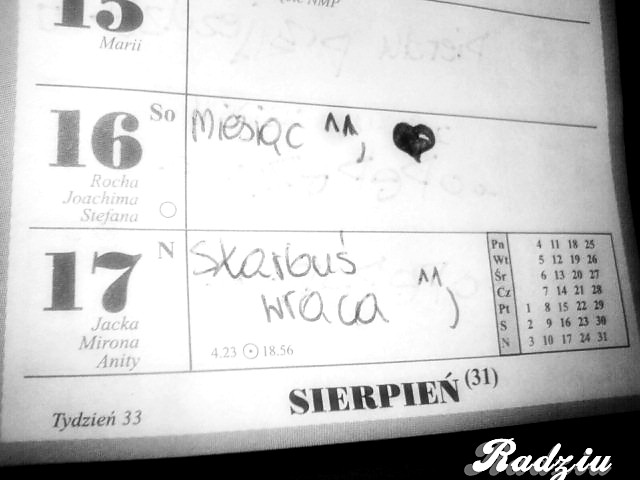 15
Marii
NMP
16 So
miesiąc ^^,
Rocha
Joachima
Stefana
17 N
Skarbuś
wraca ^^)
Jacka
Mirona
Anity
4.23 18.56
Pn 4 11 18 25
Wt 5 12 19 26
Śr 6 13 20 27
Cz 7 14 21 28
Pt 1 8 15 22 29
S 2 9 16 23 30
N 3 10 17 24 31
SIERPIEŃ (31)
Tydzień 33
Radziu